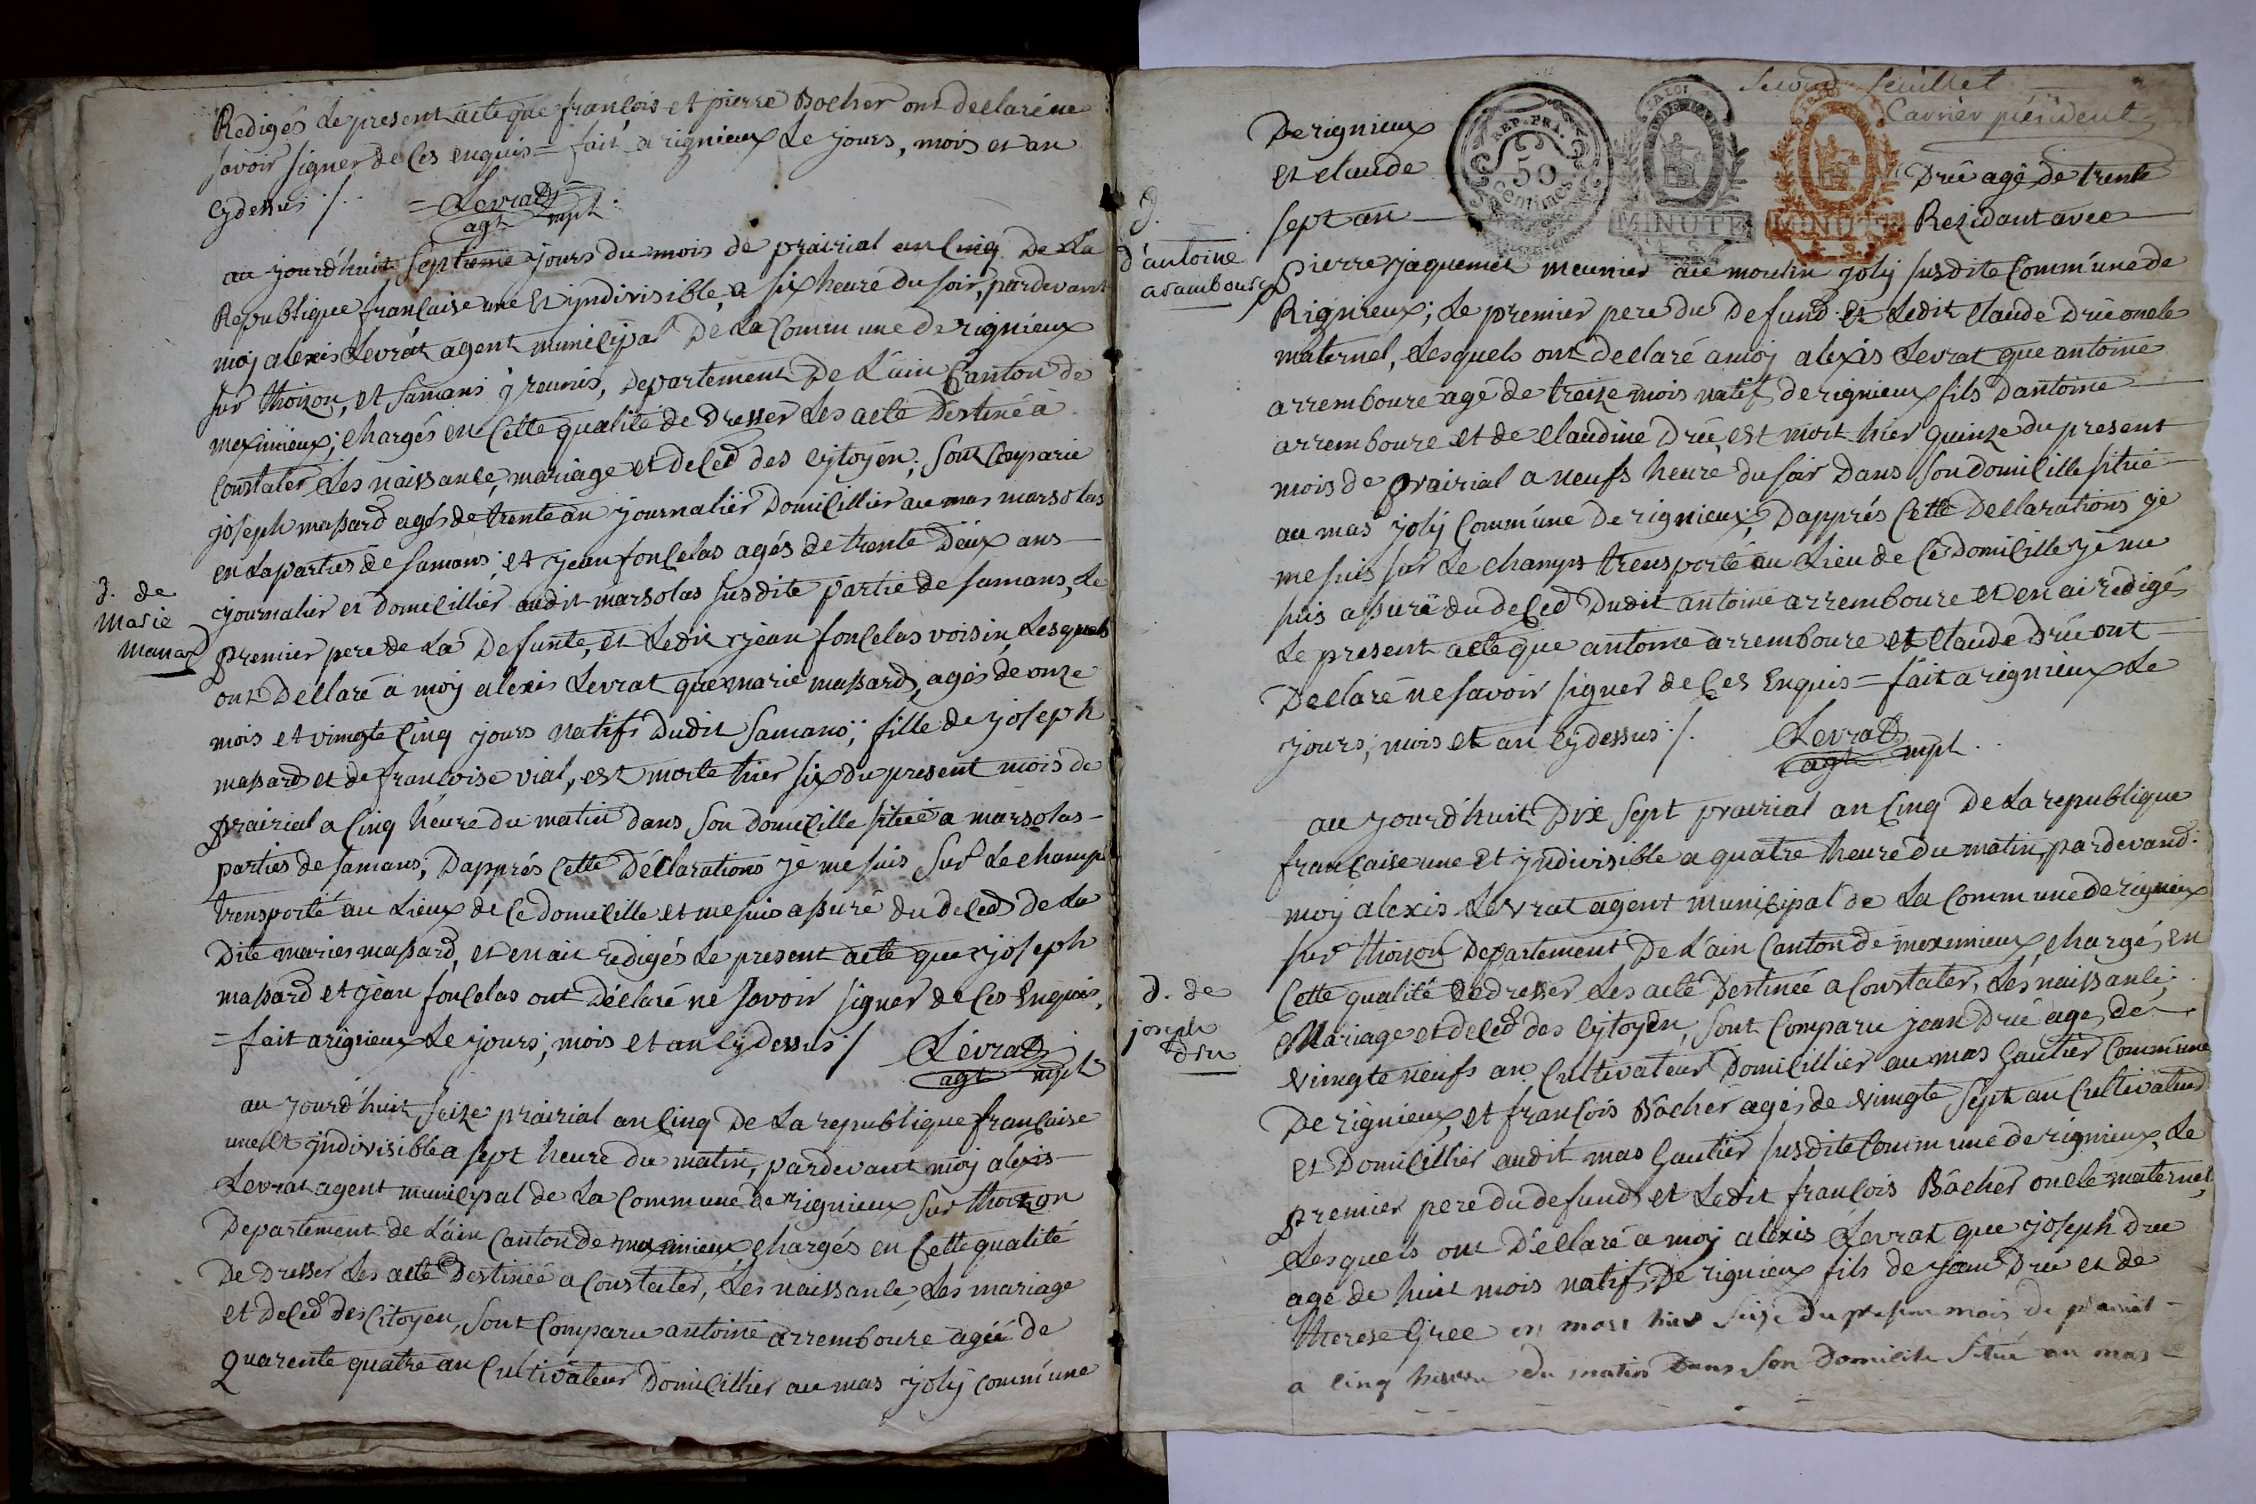 Redigés Le present acte que françois et pierre Bocher ont declaré ne
savoir signer de Ces enquis = fait a rignieux Le jours, mois et an
Cydessus /. = Levrat
agt mpl
au jourd'huit septieme jours du mois de prairial an Cinq De La
Republique française une Et jndivisible, a six heure du soir, pardevant
moj alexis Levrat agent municipal De La Commune de rignieux
sur thoizon, et samans y reunis, Departement De L'ain Canton de
meximieux; chargés en Cette qualité de Dresser Les acte Destiné a
Constater Les naissance, mariage et deCed des Cytoyen; sont Comparie
joseph massard agés de trente an journalier DomiCillier au mas marsolas
en La parties de samans; et jean fonCelas agés de trente Deux ans
journalier et domiCillier audit marsolas susdite partie de samans, Le
premier pere de La Defunte, et Ledit jean fonCelas voisin, Lesquels
ont Déllaré á moj alexis Levrat que marie massard, agés de onze
mois et vingte Cinq jours natifs Dudit samans; fille de joseph
massard et de francoise vial, est morte hier six du present mois de
prairial a Cinq heure du matin dans son domiCille situé a marsolas
parties de samans; D'apprés Cette Déclarations je me suis sur Le champ
trensporté au Lieux de Ce domiCille et me suis assuré du deCed de La
Dite maries massard, et en ait redigés Le present acte que joseph
massard et jean fonCelas ont Déclaré ne savoir signer de Ces Enquis,
= fait a rignieux Le jours; mois et an Cydessus / Levrat
agt mpl
d. de
Marie
Massard
au jourd'huit seize prairial an Cinq De La republique française
une Et jndivisible a sept heure du matin, pardevant moj alexis
Levrat agent municypal de La Commune de rignieux sur thoizon
Departement de L'ain Canton de meximieux chargés en Cette qualité
De Dresser Les acte Destinéé a Constater, Les naissance, Les mariage
et deCed des Citoyen, sont Comparu antoine arremboure agéé de
Quarente quatre an Cultivateur DomiCillier au mas joly commune
second feuillet
De rignieux
Et claude Drü agé de trente
sept an Rezidant avec
REP. FRA.
50
Centimes
LA LOI
MINUTE
4. S.
LA LOI
MINUTE
4. S.
d.
d'antoine
arambourg
Pierre jaquemet meunier au moulin joly susdite Commune de
Rignieux; Le premier pere du Defund Et Ledit Claude Drü oncle
maternel, Lesquels ont Declaré a moj alexis Levrat que antoine
arremboure agé de treize mois natif de rignieux fils Dantoine
arremboure et de Claudine Drü, est mort hier Quinze du present
mois de prairial a neufs heure du soir Dans son domiCille situé
au mas joly Commune De rignieux; Dapprés Cette Declarations je
me suis sur Le champs trensporté au Lieu de Ce DomiCille je me
suis assuré du deCed Dudit antoine arremboure et en ai redigés
Le present acte que antoine arremboure et Claude Drü ont
Declaré ne savoir signer de Ces Enquis = fait a rignieux Le
jours; mois et an Cydessus /. Levrat
agt mpl
au jourd'huit Dix sept prairial an Cinq De La republique
française une Et jndivisible a quatre heure du matin, pardevand
moj alexis Levrat agent municipal de La Commune de rignieux
sur thoizon Departement De L'ain Canton de meximieux, chargés, en
Cette qualité de dresser Les acte Destinéé a Constater, Les naissance;
Mariage et deCed des Cytoyen, sont Comparu jean Drü agé, de
vingte neufs an Cultivateur DomiCillier au mas gautier Commune
De rignieux, et françois Bâcher agés de vingte sept an Cultivateur
Et DomiCillier audit mas gautier susdite Commune de rignieux, Le
premier pere du defund et Ledit françois Bâcher oncle maternel,
Lesquels ont Déllaré a moj alexis Levrat que joseph dru
agé de huit mois natif De rignieux fils de jean Drü et de
therese gree est mort hier seize Du present mois de prairial
a Cinq heure du matin Dans son Domicile situé au mas
d. de
joseph
dru